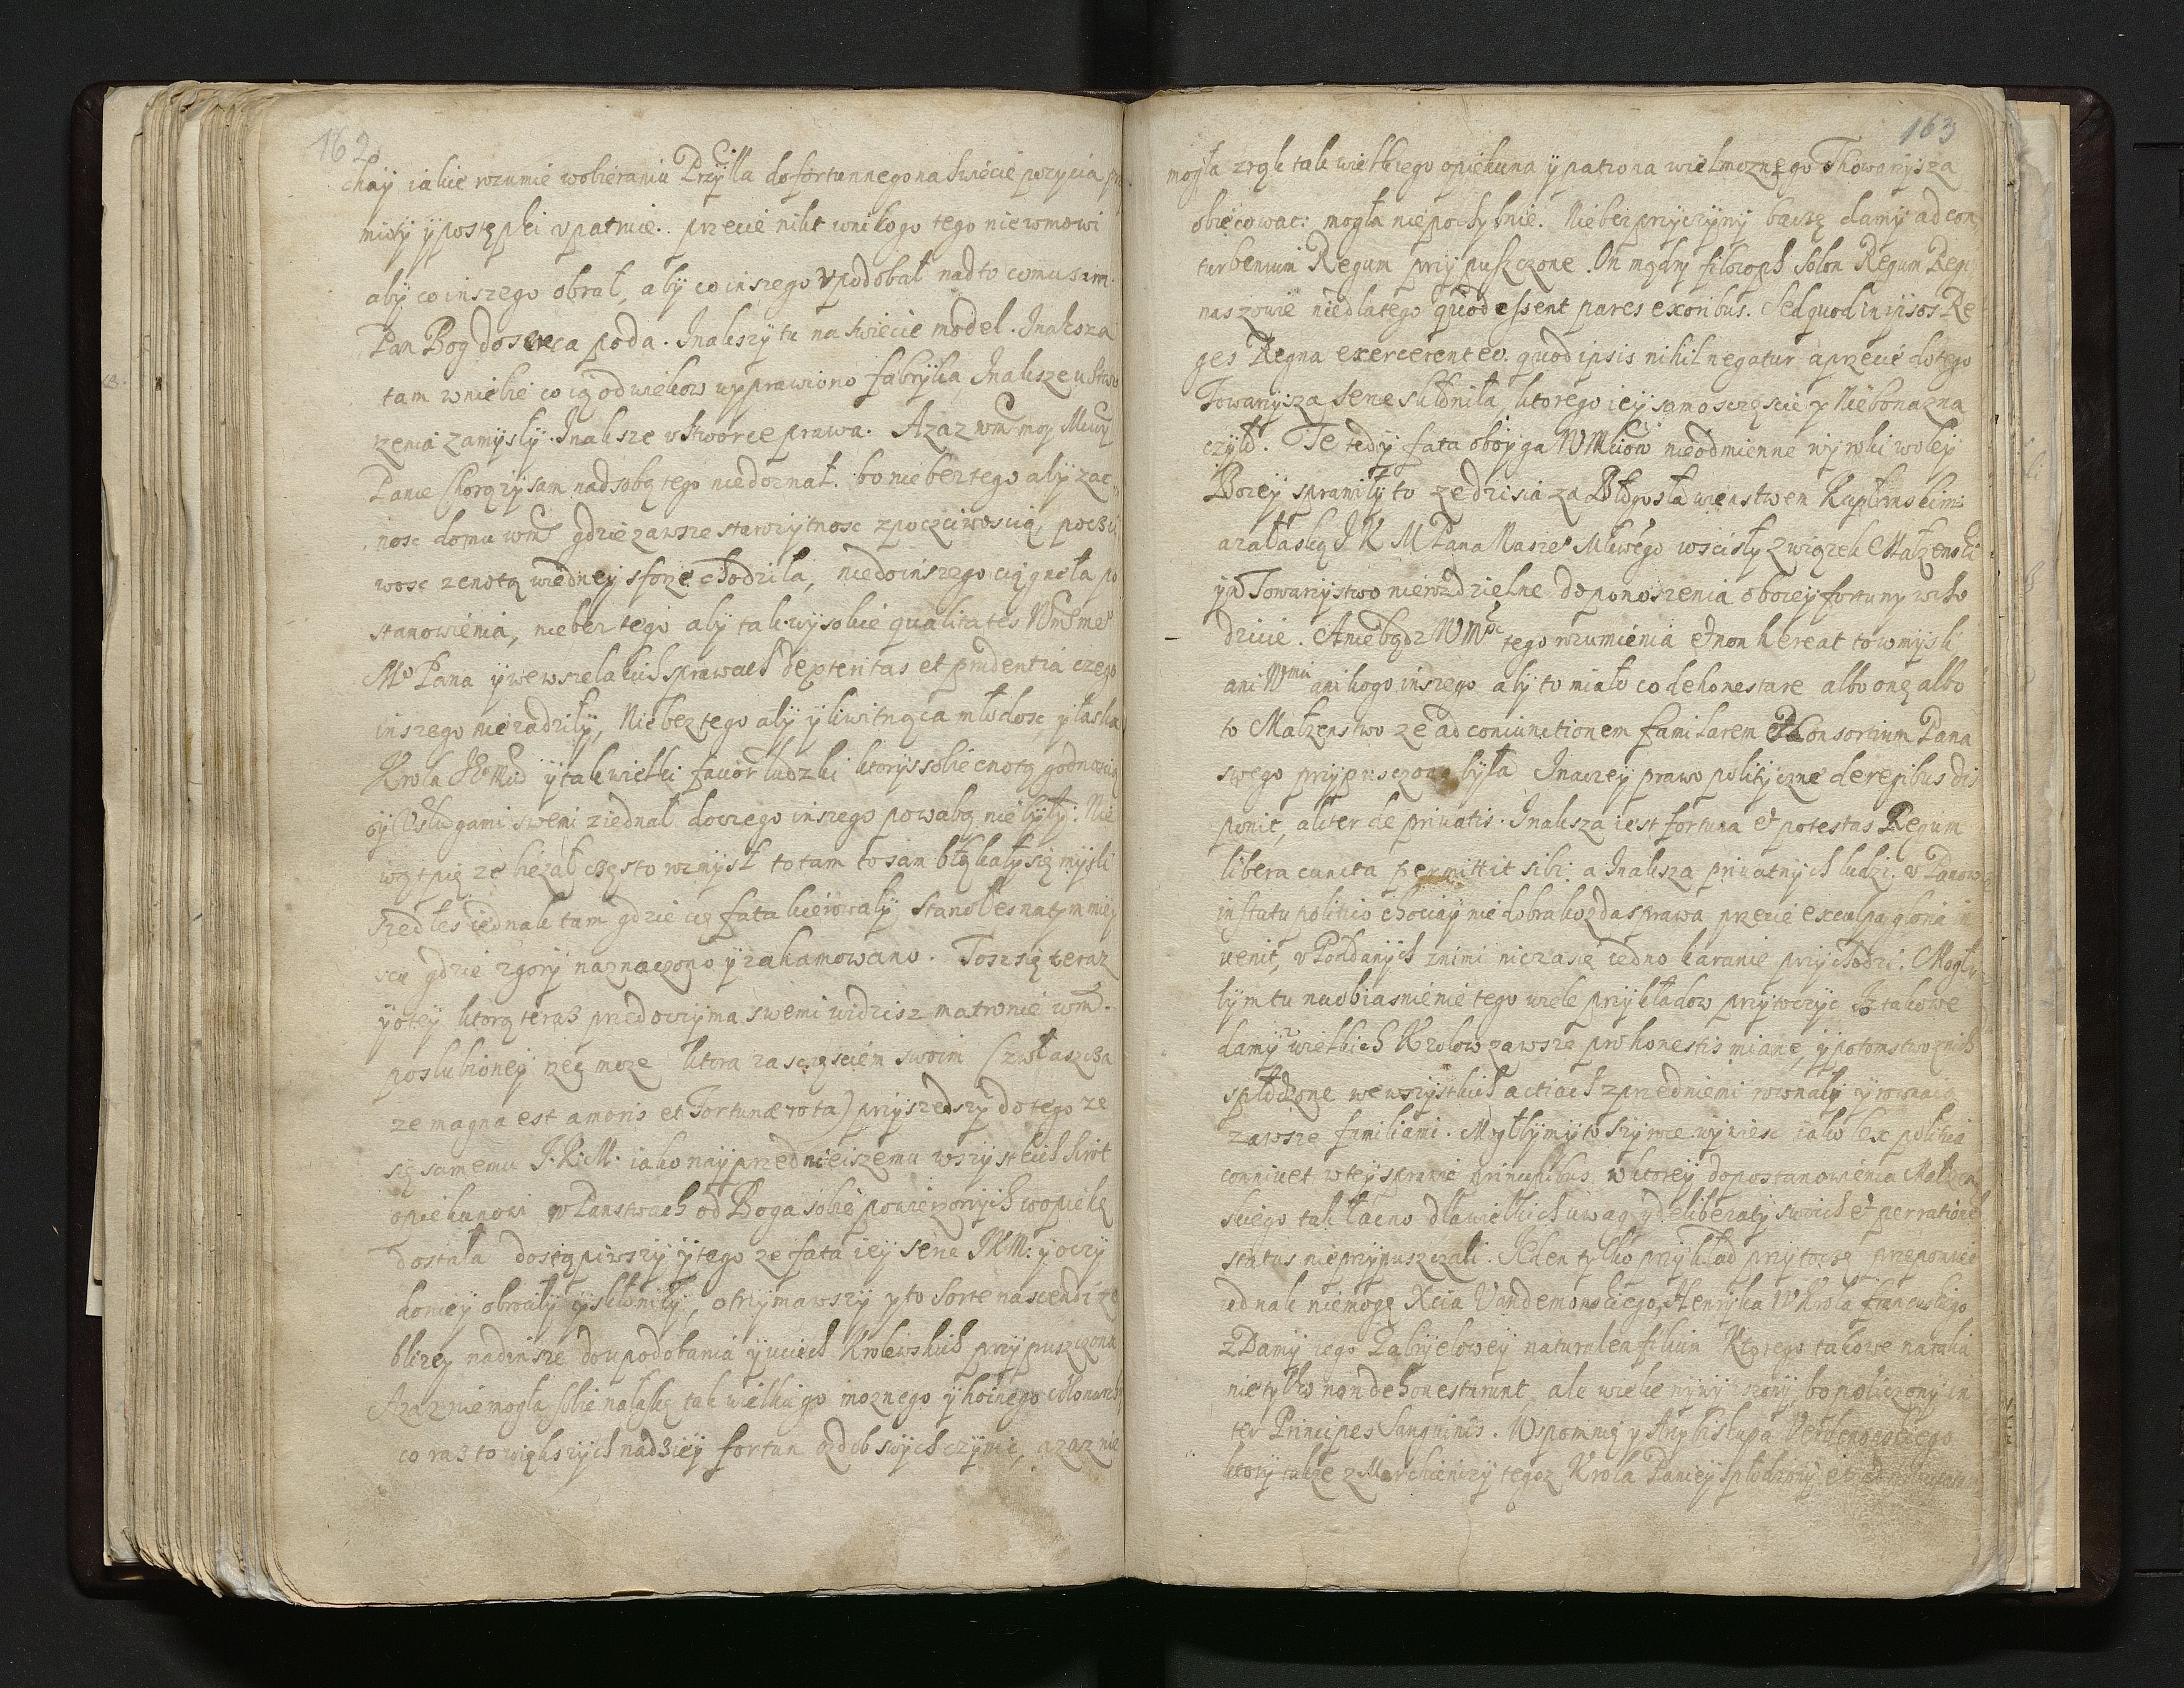 162
chaÿ iakie rozumie wobieraniu Przÿ[...]la dofortunnego na swiecie pozycia
mioty ÿ postępki upatruie. przecie nikt wnikogo tego nie wmowi
abÿ co inszego obrał, abÿ co inszego Vpodobał nad to co mu sam
Pan Bog do serca poda. Inakszy tu na swiecie model. Inaksza
tam w niebie co ią od wiekow wyprawiono fabrÿka Inaksze u Stwo
rzenia zamysłÿ. Inaksze v stworce prawa. Azaz wmć moy Mciwÿ
Panie Chorązy sam nad sobą tego niedoznał. bo nie bez tego abÿ zac
nosc domu wmć gdzie zawsze starozÿtnosc z poczciwoscią, poczci
wosc z cnotą wiedneÿ sforze chodziła, niedoinszego ciągneła po
stanowienia, nie bez tego abÿ tak wÿsokie qualitates Wmć me°
M° Pana ÿ we wszelakich sprawach dexteritas et prudentia czego
inszego nieradziłÿ, Nie bez tego abÿ ÿ kwitnąca młodosc ÿ łaska
Krola Je° Mci ÿ tak wielki fauor ludzki ktorÿs sobie cnotą godnoscią
ÿ Vsługami swemi ziednał do czego inszego powabą nie bÿłÿ: Nie
wątpię ze biezał często wmysł to tam to sam błąkałÿ się mysli
szedłes iednak tam gdzie cię fata kierowałÿ, stanołes na tym miey
scu gdzie zgorÿ naznaczono ÿ zahamowano. Tosz się teraz
ÿ oteÿ ktorą teras przed oczÿma swemi widzisz matronie wmć.
poslubioneÿ rzec moze ktora za szczęsciem swoim (zwłaszcza
ze magna est amoris et Fortunæ rota) przÿszedszÿ do tego ze
się samemu J. K. M: iako naÿprzednieiszemu wszÿstkich sirot
opiekunowi w Panstwach od Boga sobie powierzonÿch wopiekę
dostała dostąpiwszÿ ÿ tego ze fata ieÿ serce JKM: ÿ oczÿ
do nieÿ obrociłÿ ÿ skłoniłÿ, otrzÿmawszÿ ÿ to sorte nascendi ze
blizeÿ nad insze do upodobania ÿ uciech Krolewskich przÿpuszczona
Azaz nie mogła sobie nałaskę tak wielkiego moznego ÿ hoinego Monarchÿ
co raz to większÿch nadzieÿ fortun ozdob swÿch czÿnic, azaz nie
163
mogła z rąk tak wielkiego opiekuna ÿ patrona wielmoznego Thowarzÿsza
obiecowac: mogła niepochÿbnie. Nie bez przÿczÿnÿ baczę damÿ ad con
turbenium Regum przÿpuszczone. On mądrÿ filozoph Solon Regum Regi
nas zowie niedlatego quod essent pares exoribus. Sed quod in ipsos Re
ges Regna exercerent eo quod ipsis nihil negatur a przecie do tego
Towarzÿsza serce skłoniła, ktorego ieÿ samo szczęscie ÿ Niebo nazna
czyło. Te tedÿ fata oboÿga WMciow nieodmienne wÿroki woleÿ
Bozeÿ sprawiłÿ to ze dzisia za Błogosławienstwem Kapłanskim
a za łaską J K M Pana Nasze° Mciwego wscisłÿ związek Małzenski
ÿ w Towarzÿstwo nierozdzielne do ponoszenia oboieÿ fortunÿ wcho
dzicie. A nie bądz WMć tego rozumienia et non hereat to wmysli
ani Wmci ani kogo inszego abÿ to miało co dehonestare albo onę albo
to Małzenstwo ze ad coniunctionem familarem et Consortium Pana
swego przÿpusczoną bÿła Inaczeÿ prawo politÿczne de regibus dis
ponit, aliter de priuatis. Inaksza iest fortuna et potestas Regum
libera cuncta permittit sibi: a Inaksza priuatnÿch ludzi. v Panow
in statu politico chociaÿ nie dobra kozda sprawa przecie ex culpa gloria in
uenit, v Poddanÿch znimi nic zasię iedno karanie przÿchodzi. Mogł
bÿm tu na obiasnienie tego wiele przÿkładow przÿtoczÿc Iz takowe
damÿ wielkich Krolow zawsze pro honestis miane, ÿ potomstwo znich
spłodzone we wszÿstkich actiach z przedniemi rownałÿ ÿ rownaią
zawsze familiami. Mogłbÿm ÿ to szyroce wÿwiesc iako lex politica
conniuet w teÿ sprawie principibus w ktoreÿ do postanowienia Małzen
skiego tak łacno dla wielkich uwag ÿ deliberatÿ swoich et per rationes
status nie przÿpuszczali. Jeden tylko przÿkład przÿtoczę przepomniec
iednak niemogę Xcia Vandemonskiego, Henrÿka IV Krola francuskiego
z Damÿ iego Gabrÿeloweÿ naturalem filium Ktorego takowe natalia
nie tÿlko non dehonestarunt, ale wielce wÿwÿzszonÿ, bo policzonÿ in
ter Principes Sanguinis. Wspomnię ÿ Arÿbiskupa Verdenonskiego
ktorÿ takze z Marchieniczÿ tegoz Krola Panieÿ spłodzonÿ